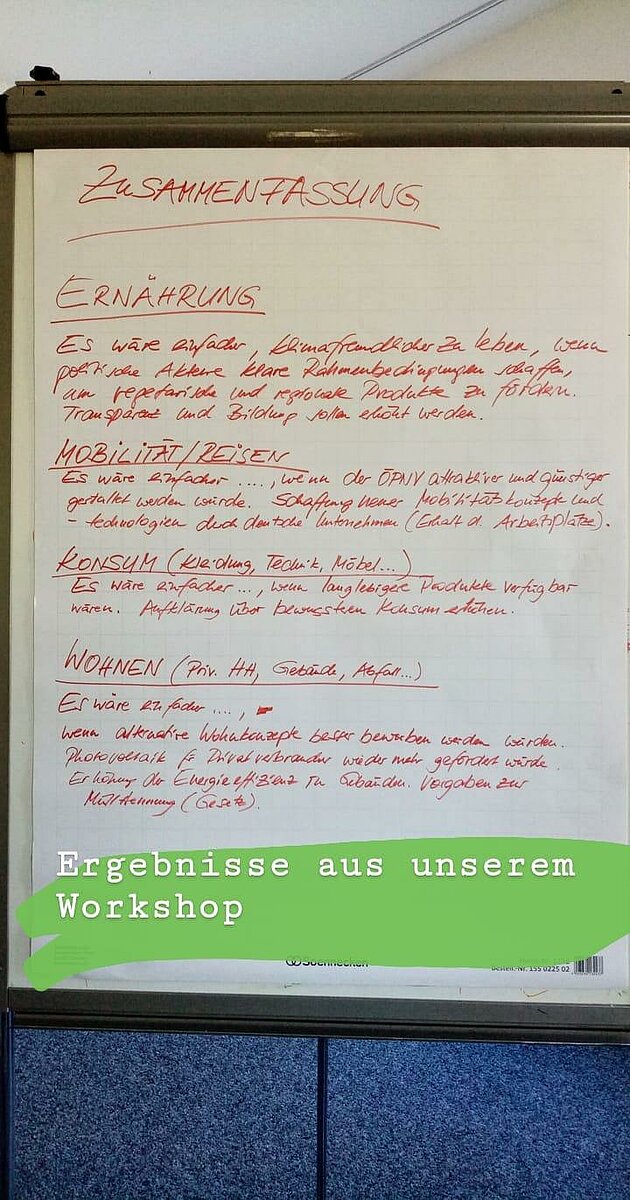 ZUSAMMENFASSUNG
ERNÄHRUNG
Es wäre einfacher, klimafreundlicher zu leben, wenn
politische Akteure klare Rahmenbedingungen schaffen,
um vegetarische und regionale Produkte zu fördern.
Transparenz und Bildung sollen erhöht werden.
MOBILITÄT/REISEN
Es wäre einfacher ...., wenn der ÖPNV attraktiver und günstiger
gestaltet werden würde. Schaffung neuer Mobilitätskonzepte und
- technologien durch deutsche Unternehmen (Erhalt d. Arbeitsplätze).
KONSUM (Kleidung, Technik, Möbel...)
Es wäre einfacher ..., wenn langlebigere Produkte verfügbar
wären. Aufklärung über bewussten Konsum erhöhen.
WOHNEN (Priv. HH, Gebäude, Abfall...)
Es wäre einfacher ....,
wenn alternative Wohnkonzepte besser beworben werden würden.
Photovoltaik für Privatverbraucher wieder mehr gefördert würde.
Erhöhung der Energieeffizienz in Gebäuden. Vorgaben zur
Mülltrennung (Gesetz).
Ergebnisse aus unserem
Workshop
Soennecken
Bestell.-Nr. 155 0225 02